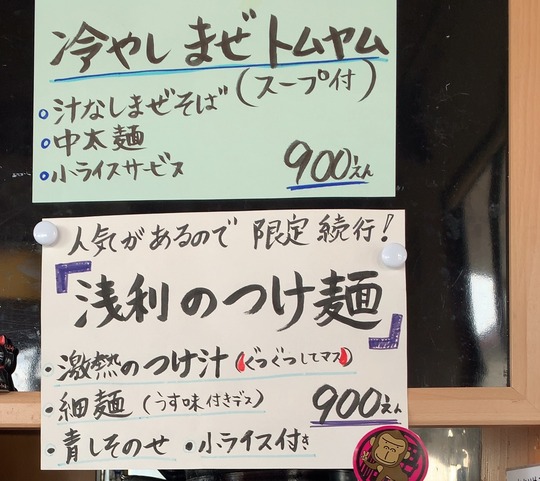 冷やし まぜトムヤム
(スープ付)
汁なしまぜそば
中太麺
小ライスサービス
900えん
人気があるので 限定 続行!
『浅利のつけ麺』
・激熱のつけ汁 (ぐつぐつしてマス)
・細麺 (うす味付きデス)
900えん
・青しそのせ ・小ライス付き